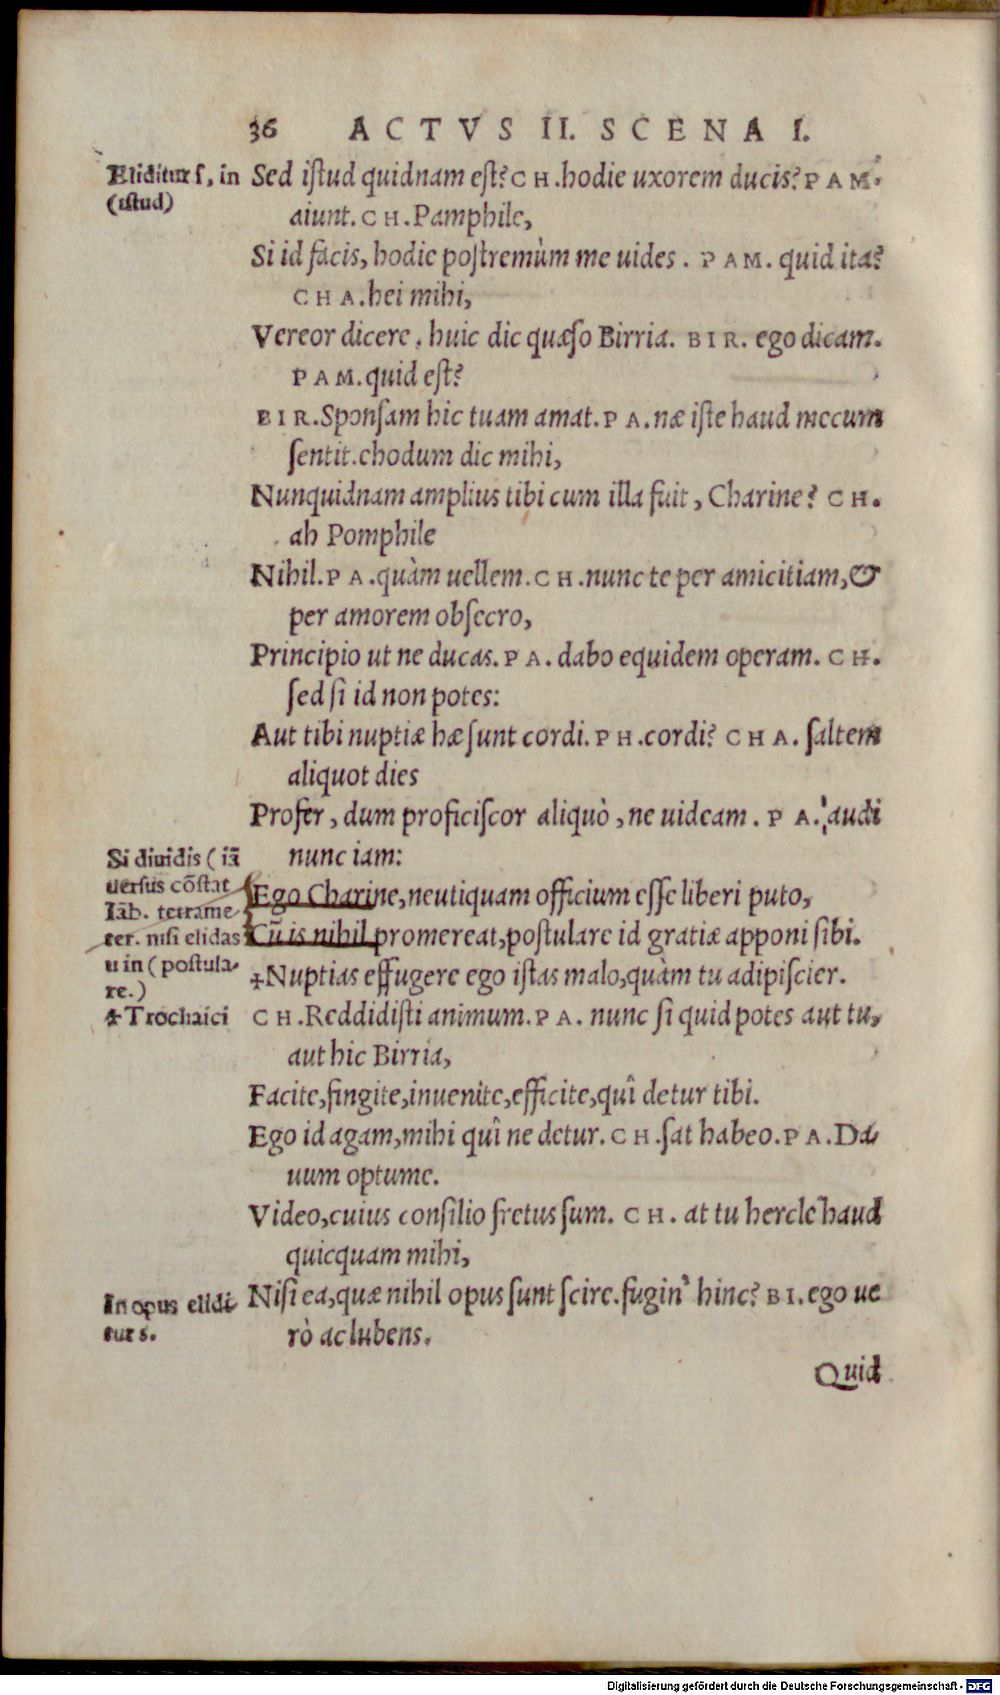 36 ACTVS II. SCENA I.
Eliditur ſ, in
(iſtud)
Sed iſtud quidnam eſt? CH. hodie uxorem ducis? PAM.
aiunt. CH. Pamphile,
Si id facis, hodie poſtremùm me uides. PAM. quid ita?
CHA. hei mihi,
Vereor dicere. huic dic quæſo Birria. BIR. ego dicam.
PAM. quid eſt?
BIR. Sponſam hic tuam amat. PA. næ iſte haud mecum
ſentit. ehodum dic mihi,
Nunquidnam amplius tibi cum illa fuit, Charine? CH.
ah Pomphile
Nihil. PA. quàm uellem. CH. nunc te per amicitiam, &
per amorem obſecro,
Principio ut ne ducas. PA. dabo equidem operam. CH.
ſed ſi id non potes:
Aut tibi nuptiæ hæ ſunt cordi. PH. cordi? CHA. ſaltem
aliquot dies
Profer, dum proficiſcor aliquò, ne uideam. PA. audi
nunc iam:
Si diuidis (iā
uerſus cōſtat
Iāb. tetrame
ter. niſi elidas
u in (poſtula-
re.)
Ego Charine, neutiquam officium eſſe liberi puto,
Cū is nihil promereat, poſtulare id gratiæ apponi ſibi.
✢Nuptias effugere ego iſtas malo, quàm tu adipiſcier.
✢Trochaici
CH. Reddidiſti animum. PA. nunc ſi quid potes aut tu,
aut hic Birria,
Facite, fingite, inuenite, efficite, quî detur tibi.
Ego id agam, mihi quî ne detur. CH. ſat habeo. PA. Da-
uum optume.
Video, cuius conſilio fretus ſum. CH. at tu hercle haud
quicquam mihi,
In opus elidi-
tur s.
Niſi ea, quæ nihil opus ſunt ſcire. fugin' hinc? BI. ego ue
rò ac lubens.
Quid
Digitalisierung gefördert durch die Deutsche Forschungsgemeinschaft - DFG